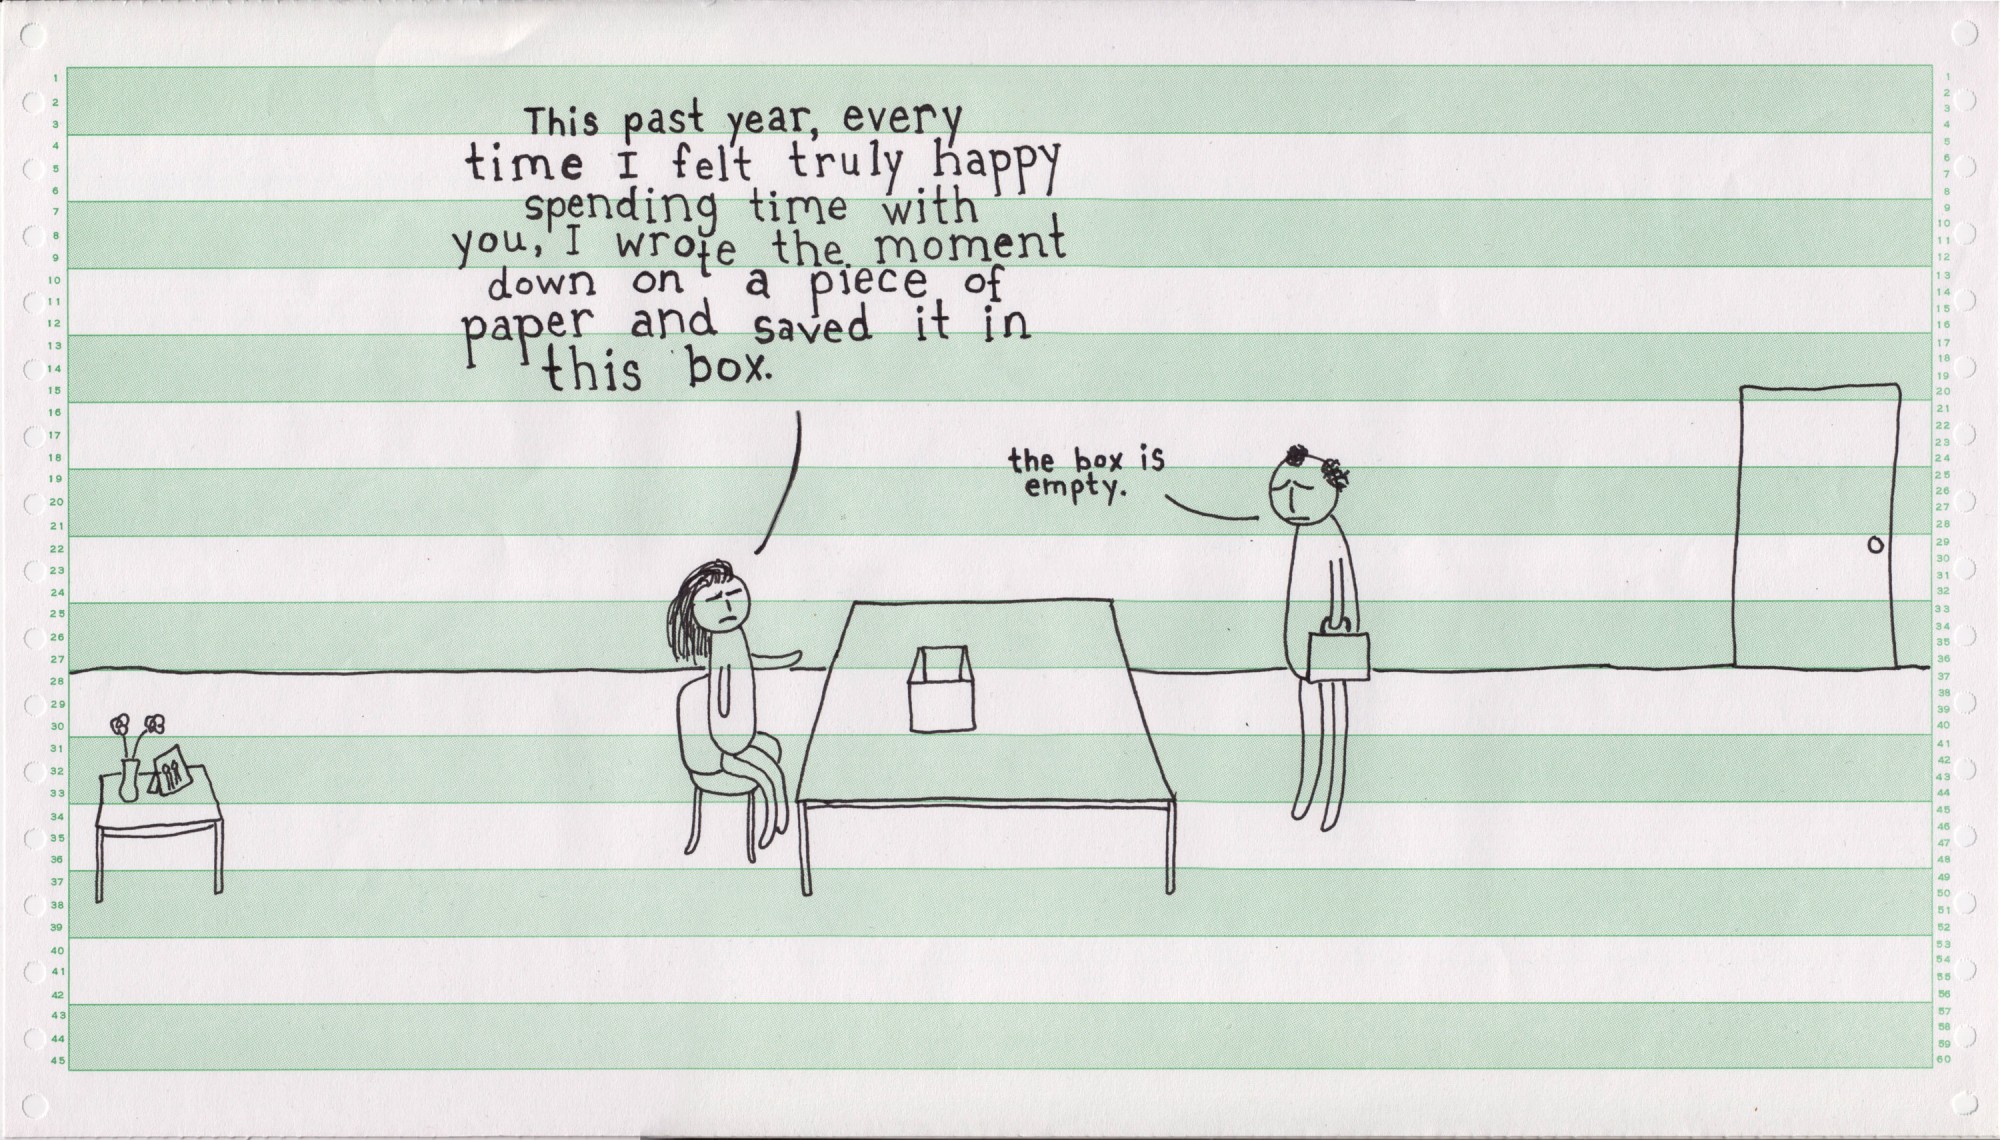 This past year, every
time I felt truly happy
spending time with
you, I wrote the moment
down on a piece of
paper and saved it in
this box.
the box is
empty.
1
2
3
4
5
6
7
8
9
10
11
12
13
14
15
16
17
18
19
20
21
22
23
24
25
26
27
28
29
30
31
32
33
34
35
36
37
38
39
40
41
42
43
44
45
1
2
3
4
5
6
7
8
9
10
11
12
13
14
15
16
17
18
19
20
21
22
23
24
25
26
27
28
29
30
31
32
33
34
35
36
37
38
39
40
41
42
43
44
45
46
47
48
49
50
51
52
53
54
55
56
57
58
59
60